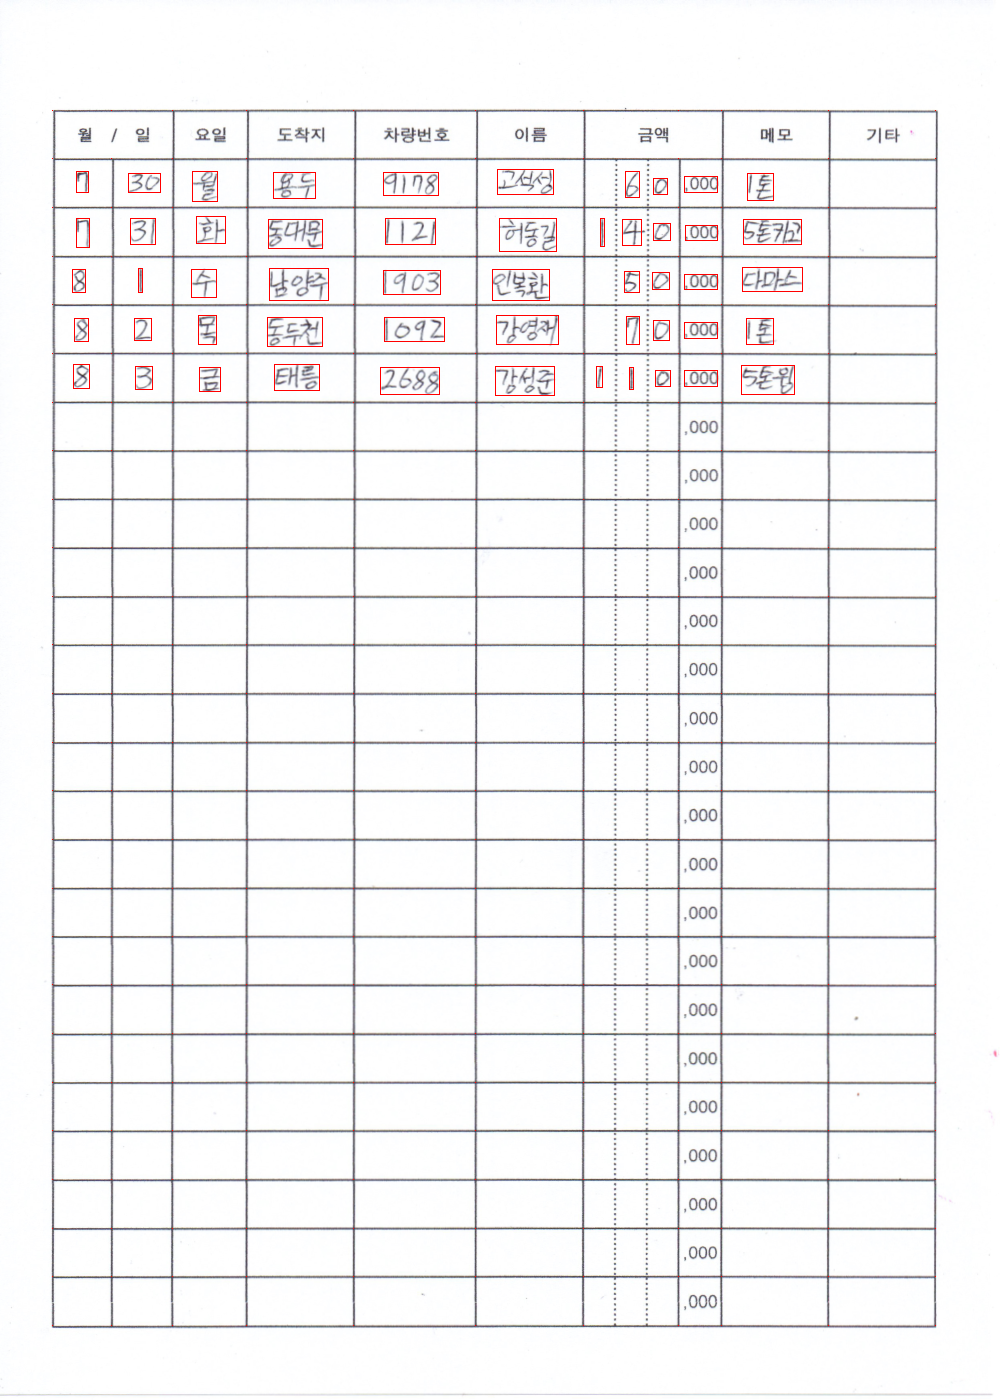 월 / 일 요일 도착지 차량번호 이름 금액 메모 기타
7 30 월 용두 9178 고석성 6 0 ,000 1톤
7 31 화 동대문 1121 허동길 1 4 0 ,000 5톤카고
8 1 수 남양주 1903 인복환 5 0 ,000 다마스
8 2 목 동두천 1092 강영재 7 0 ,000 1톤
8 3 금 태릉 2688 강성준 1 1 0 ,000 5톤윙
,000
,000
,000
,000
,000
,000
,000
,000
,000
,000
,000
,000
,000
,000
,000
,000
,000
,000
,000